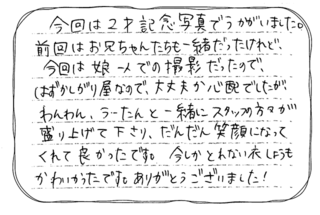 今回は2才記念写真でうかがいました。
前回はお兄ちゃんたちも一緒だったけれど、
今回は娘一人での撮影だったので、
はずかしがり屋なので、大丈夫か心配でしたが、
わんわん、うーたんと一緒にスタッフの方々が
盛り上げて下さり、だんだん笑顔になって
くれて良かったです。今しかとれない衣しょうも
かわいかったです。ありがとうございました!